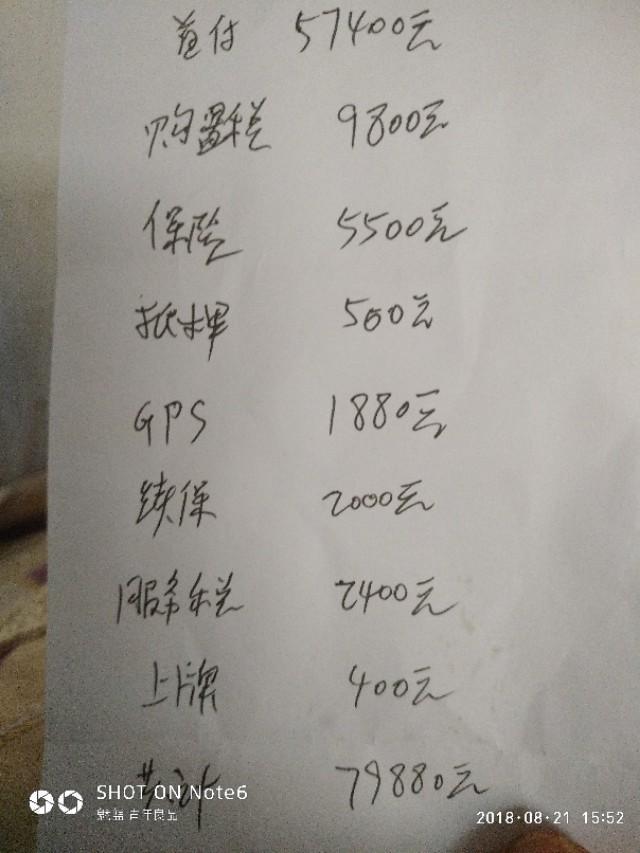 首付 57400元
购置税 9800元
保险 5500元
抵押 500元
GPS 1880元
续保 2000元
服务税 2400元
上牌 400元
共计 79880元
SHOT ON Note6
魅蓝 百千良品
2018·08·21 15:52